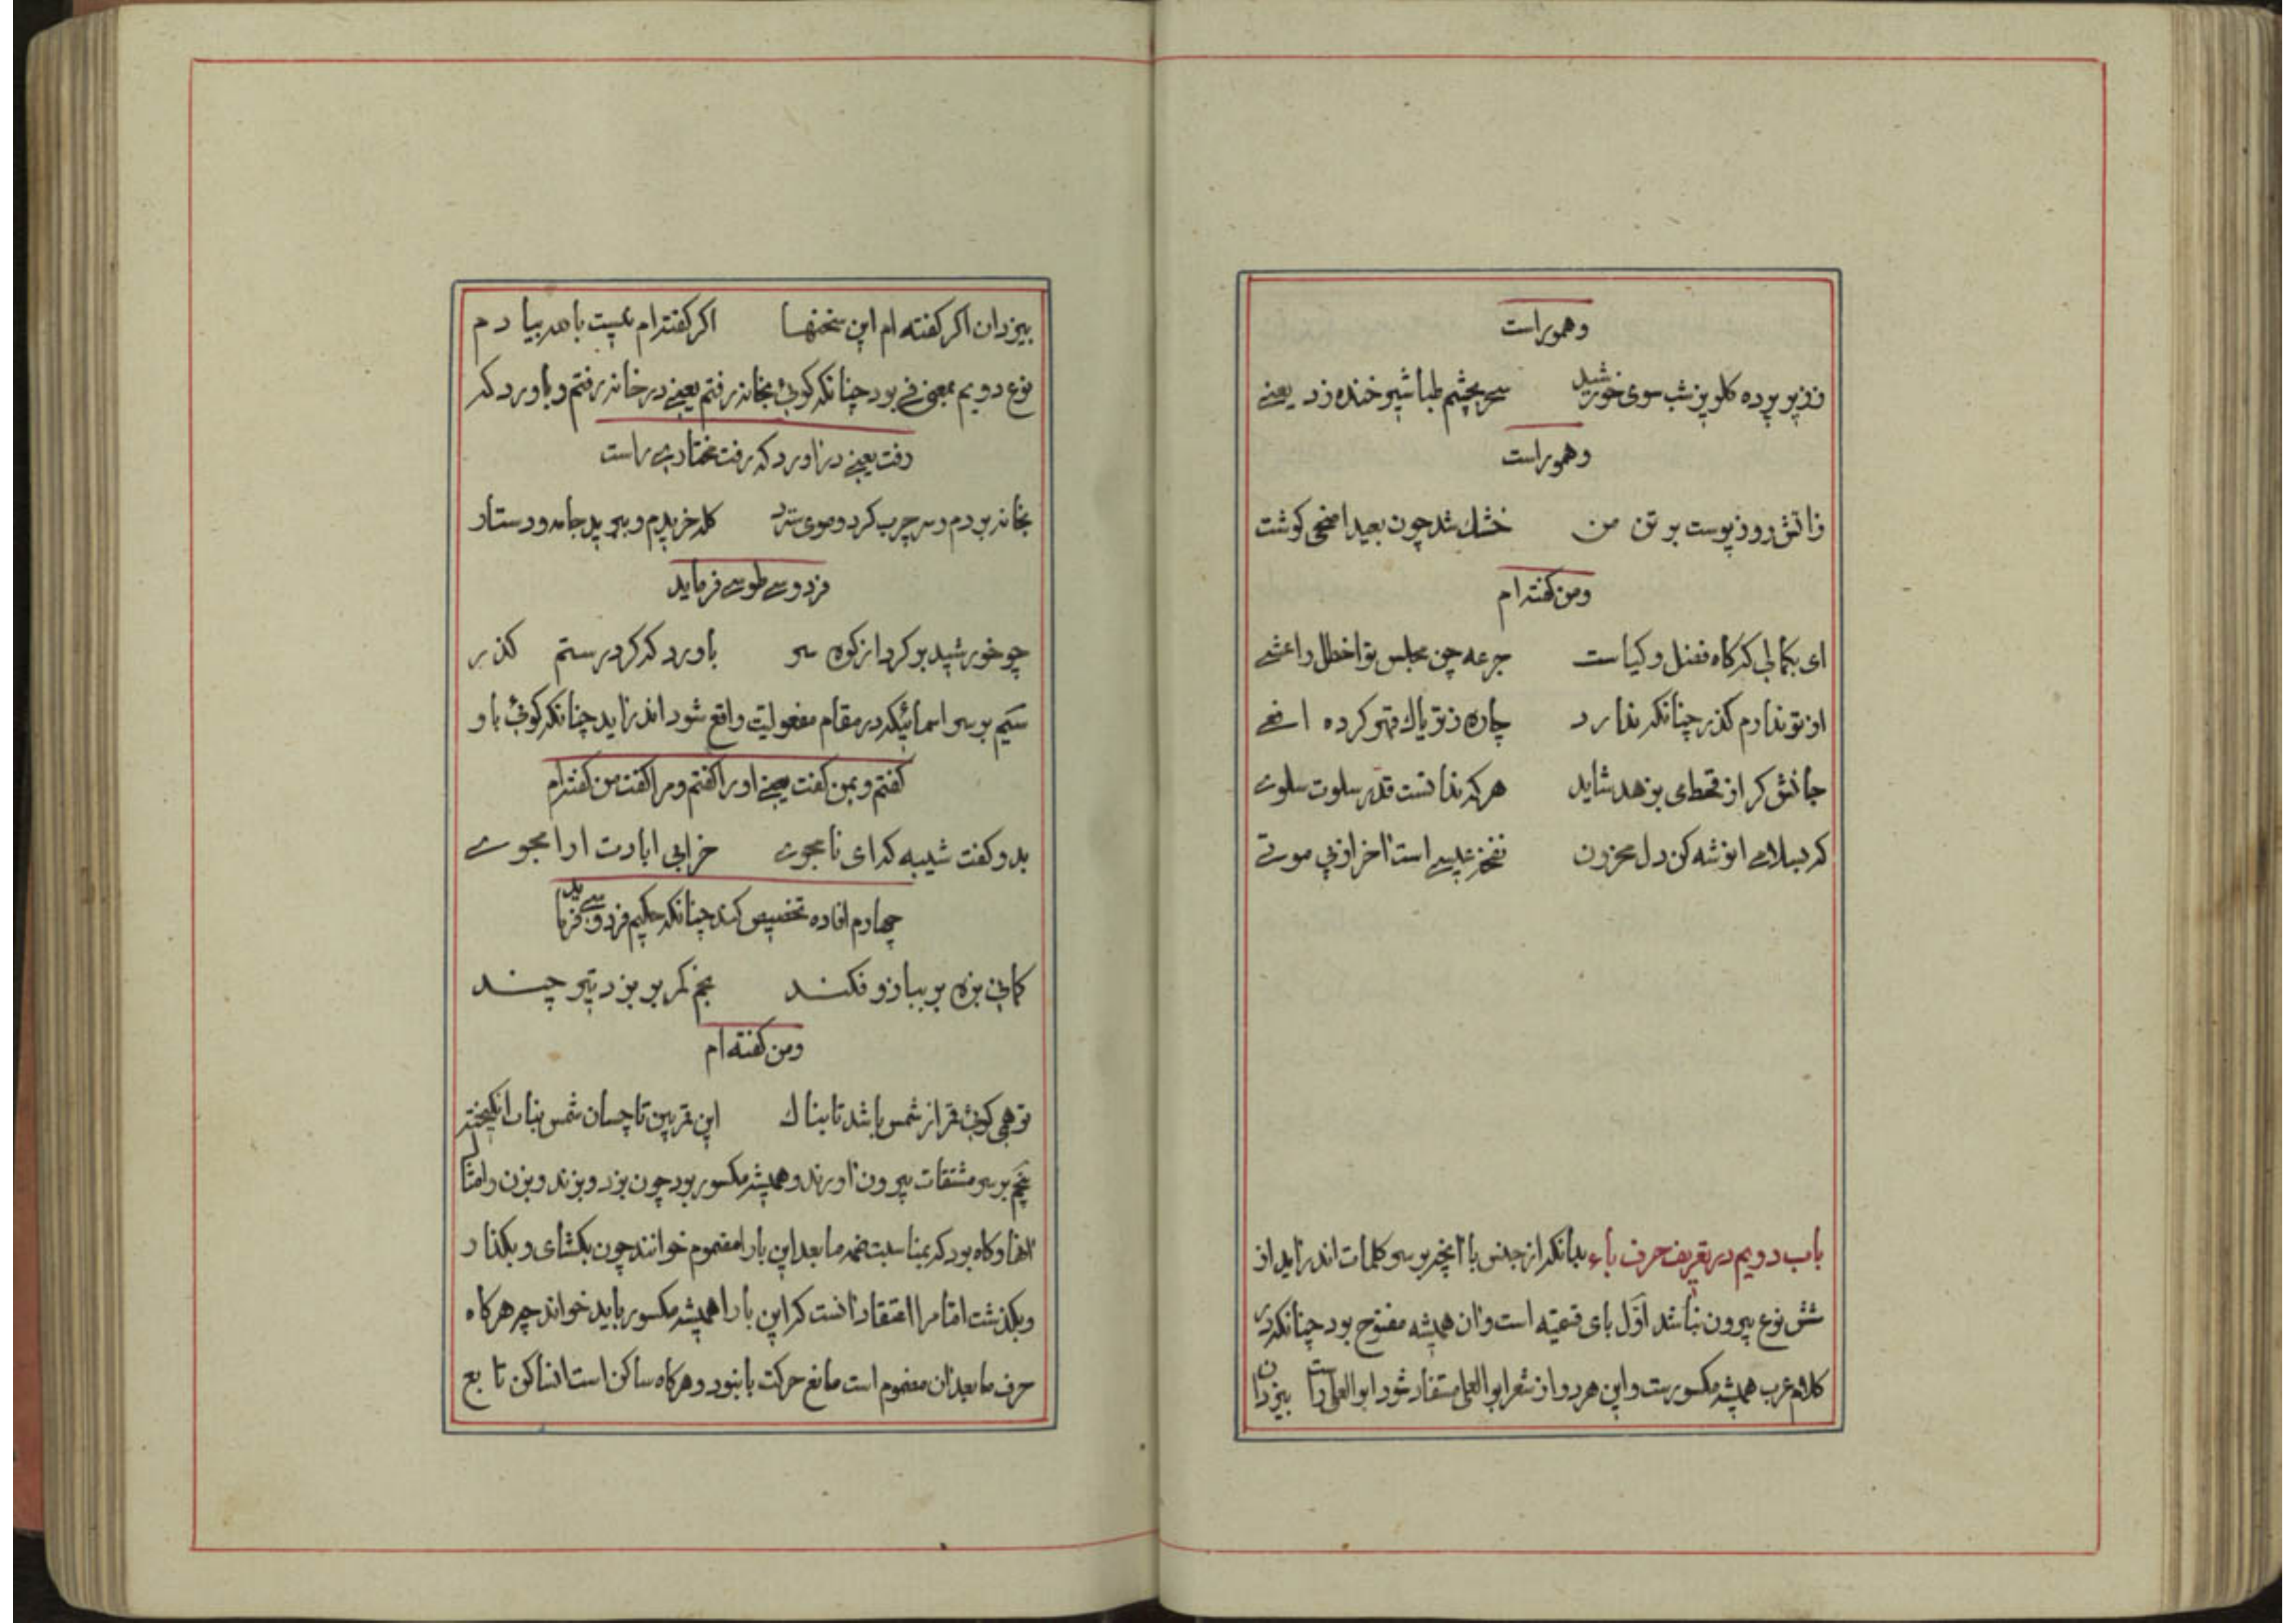 وهموراست
ززیر پرده کلریز شب سوی خورشید سحر بچشم طباشیر خنده زد یعنے
وهموراست
زاتش روز پوست بر تن من خشك شد چون بعید اضحی کوشت
ومن کفته ام
ای بکمالی که کاه فضل و کیاست جرعه چن مجلس تو اخطل و اعشے
از تو ندارم کذر چنانکه ندارد چاره ز تریاك قهر کرده افعے
جانش کر از قحط می بزهد شاید هر که ندانست قدر سلوت سلوے
که بسلامے انوشه کن دل محزون نفخه عیسے است اخر از پی موتے
باب دویم در تعریف حرف باء بدانکه از جنس با انچه بر سر کلمات اندر اید از
شش نوع بیرون نباشد اوّل بای قسمیّه است وان همیشه مفتوح بود چنانکه در
کلام عرب همیشه مکسورست واین هر دو از شعر ابو العلی مستفاد شود ابو العلی راست بیزدان
بیزدان اکر کفته ام این سخنها اکر کفته ام نیست باهر بیادم
نوع دویم بمعنی فے بود چنانکه کوئی بخانه رفتم یعنے در خانه رفتم و باورد که
رفت یعنے در اورد که رفت مختارے راست
بخانه بردم و سر چرب کرد و موی سترد کله خریدم و ببرید جامه و دستار
فردوسے طوسے فرماید
چو خورشید بر کرد از کوه سر باورد که کرد رستم کذر
سیّم بر سر اسمائیکه در مقام مفعولیّت واقع شود اندر اید چنانکه کوئی باو
کفتم و بمن کفت یعنے اورا کفتم و مرا کفت من کفته ام
بدو کفت شیبه که ای نامجوے خرابی ابادت ارامجوے
چهارم افاده تخصیص کند چنانکه حکیم فردوسے فرماید
کمانی بزه بر ببازو فکند بخم کمر بر بزد تیر چند
ومن کفته ام
تو همی کوئی قمر از شمس باشد تابناك این قمر بین تا چسان شمس بنات انکیخته
پنجم بر سر مشتقات بیرون اورند و همیشه مکسور بود چون بزد و بزند و بزن و امثال
انها و کاه بود که بمناسبت ضمه ما بعد این با را مضموم خوانند چون بکشای و بکذار
و بکذشت امّا مرا اعتقاد انست که این با را همیشه مکسور باید خواند چه هر کاه
حرف ما بعد ان مضموم است مانع حرکت با نبود و هر کاه ساکن است انساکن تابع